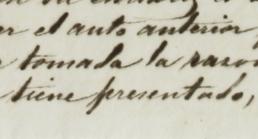 er el auto anterior
tomada la razon
tiene presentado,